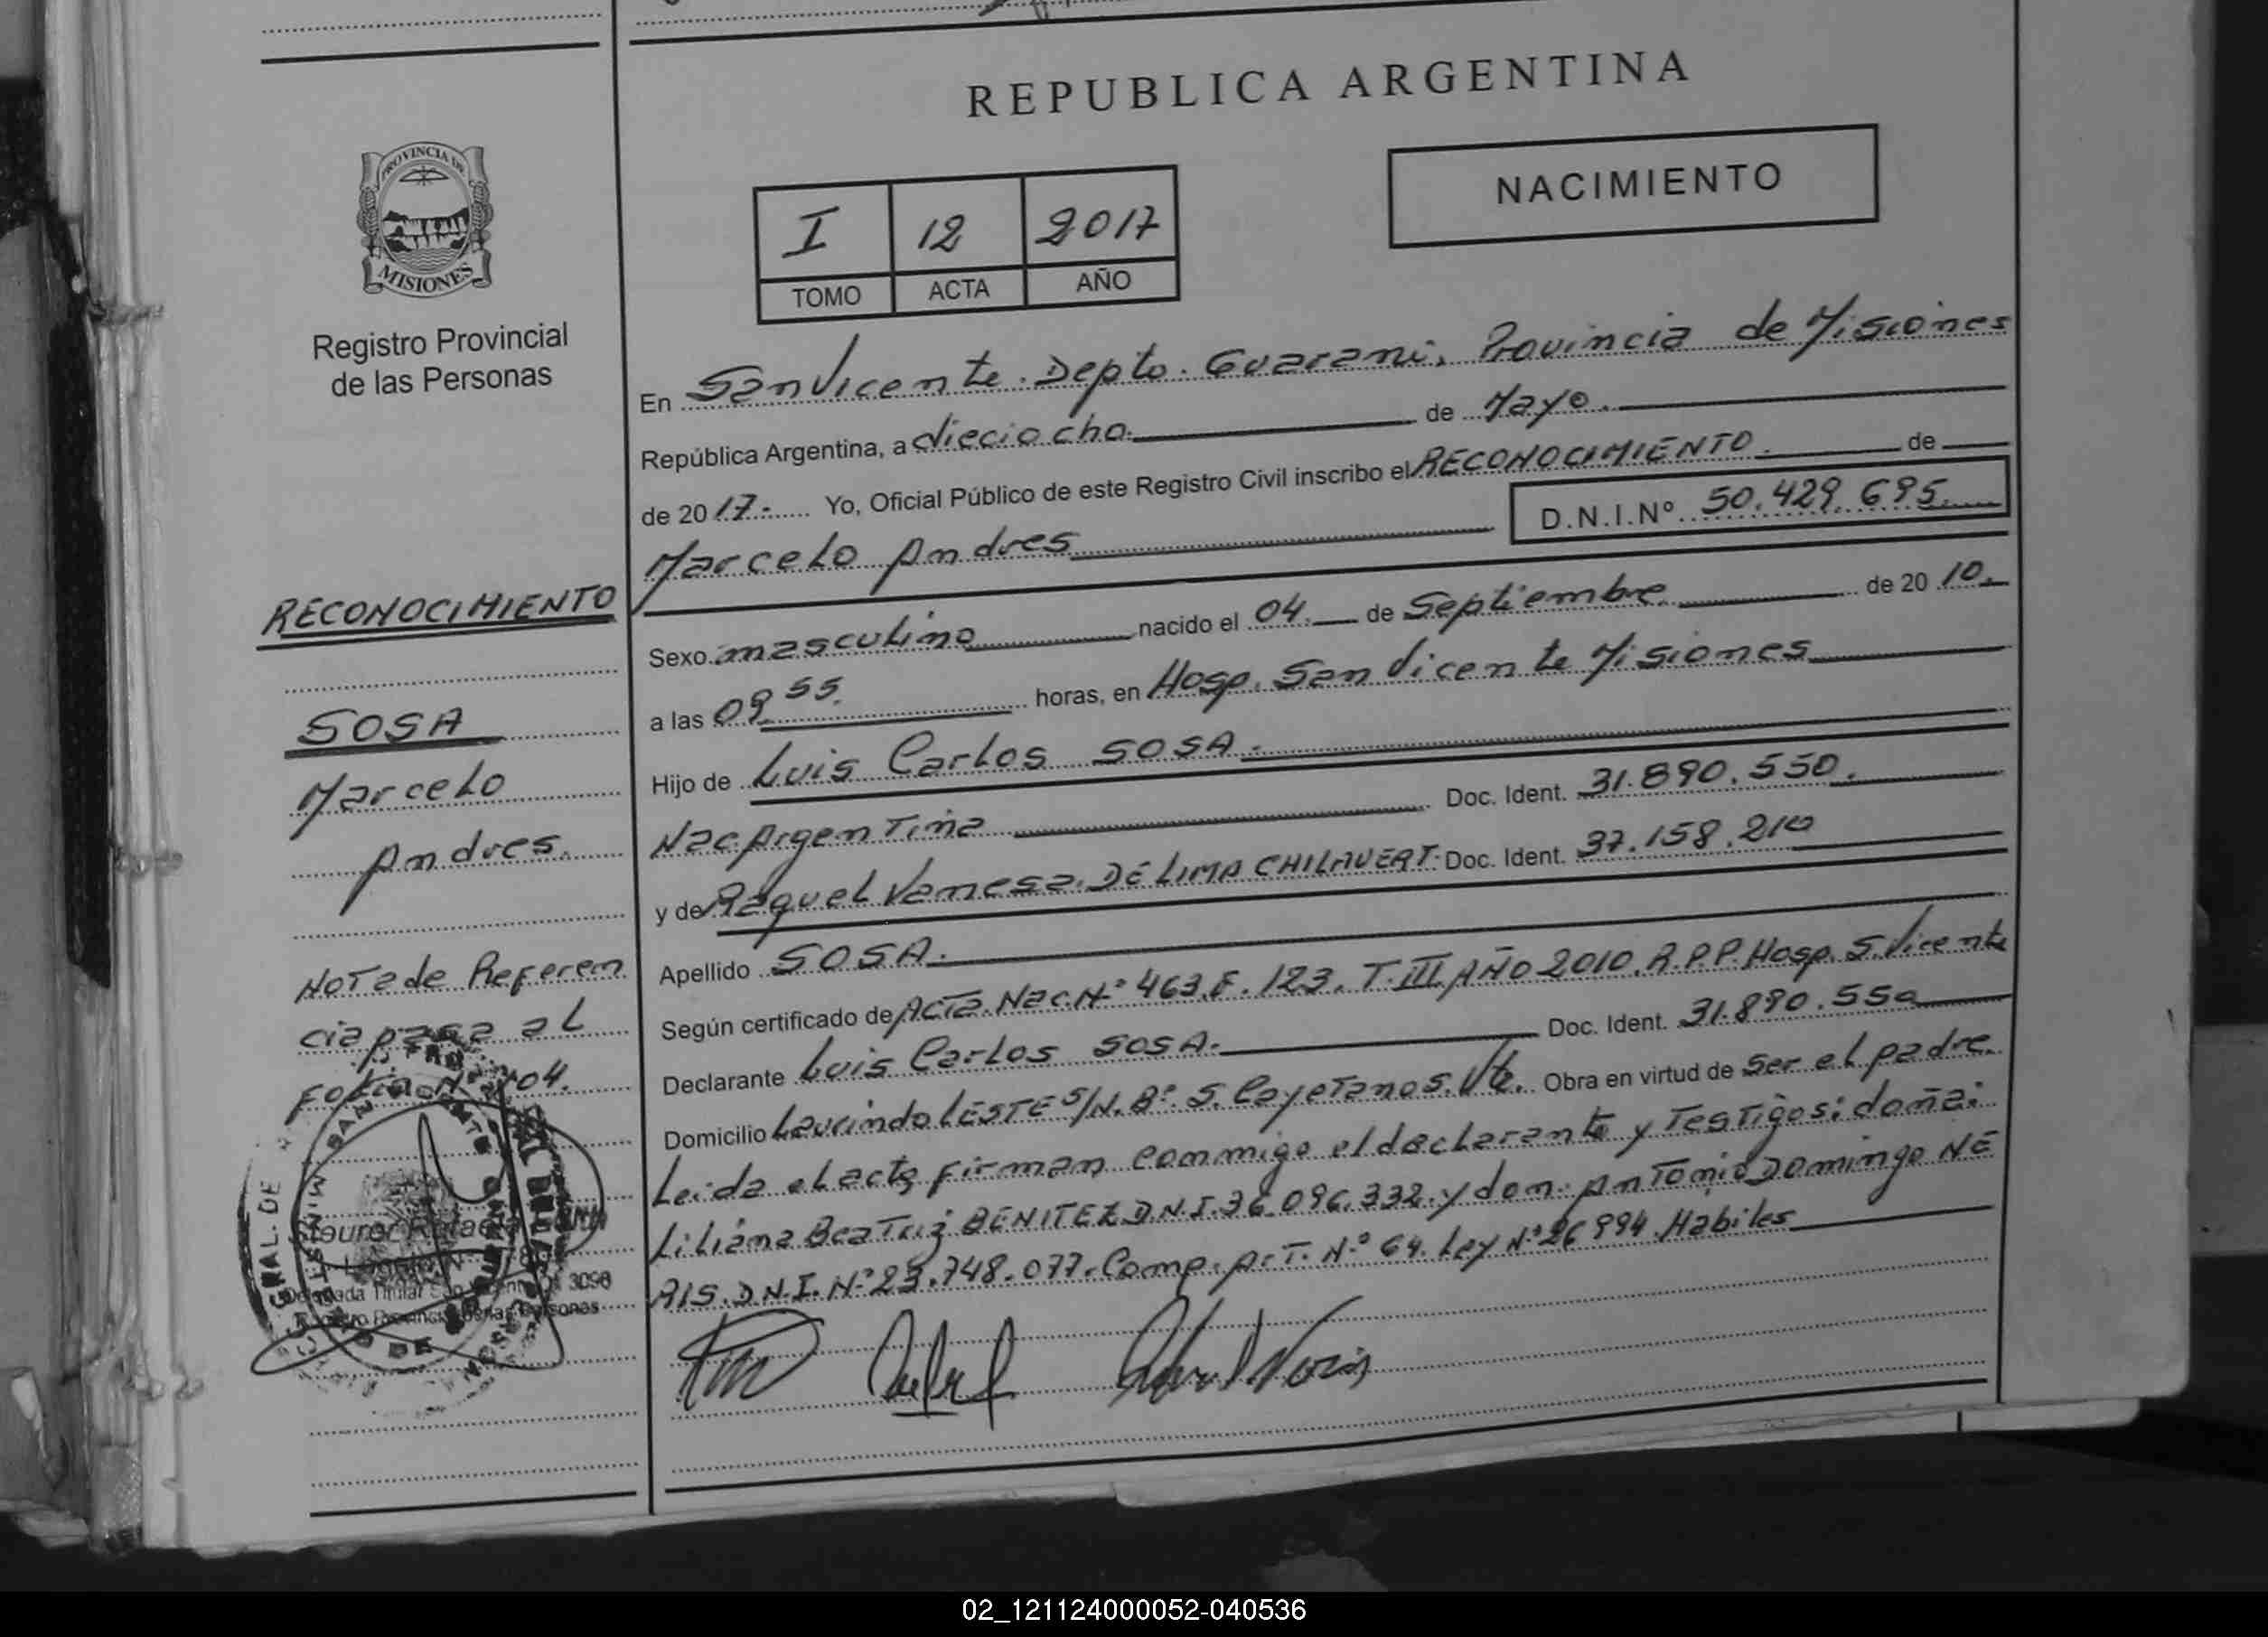 REPUBLICA ARGENTINA
NACIMIENTO
I 12 2017
TOMO ACTA AÑO
PROVINCIA DE
MISIONES
Registro Provincial
de las Personas
RECONOCIMIENTO
SOSA
Marcelo
Andres.
Nota de Referen
cia pasa al
Folio N° 104.
En San Vicente. Depto. Guarani. Provincia de Misiones
República Argentina, a dieciocho. de Mayo.
de 2017.- Yo, Oficial Público de este Registro Civil inscribo el RECONOCIMIENTO. de
Marcelo Andres D.N.I.Nº 50.429.695.
Sexo masculino nacido el 04. de Septiembre. de 2010.
a las 09 55. horas, en Hosp. San Vicente Misiones
Hijo de Luis Carlos SOSA.
Nac. Argentina Doc. Ident. 31.890.550.
y de Raquel Vanesa. DE LIMA CHILAVERT. Doc. Ident. 37.158.210
Apellido SOSA.
Según certificado de Acta. Nac. N° 463. F. 123. T. III AÑO 2010. R.P.P. Hosp. S. Vicente
Declarante Luis Carlos SOSA. Doc. Ident. 31.890.550
Domicilio Laurindo LESTE S/N. B° S. Cayetano S. Vte. Obra en virtud de ser el padre.
Leida el acta, firman conmigo el declarante y Testigos: doña:
Liliana Beatriz BENITEZ D.N.I. 36.096.332. y don: Antonio Domingo NE
RIS. D.N.I. N° 23.748.077. Comp. Art. N° 64. Ley N° 26994. Habiles
02_121124000052-040536